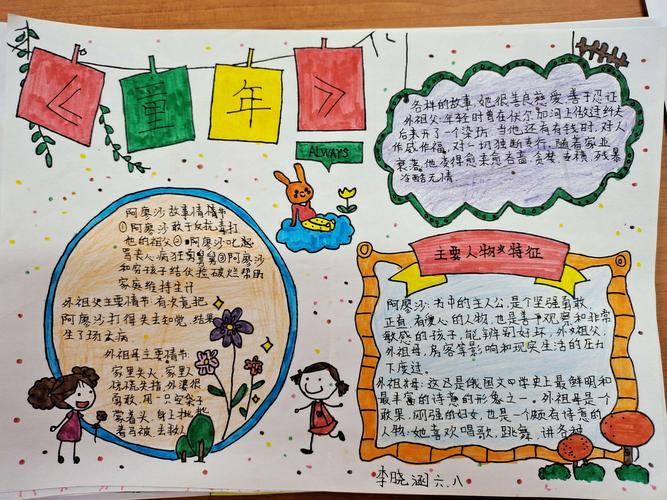 《童年》
ALWAYS
各样的故事,她很善良慈爱,善于忍让
外祖父:年轻时曾在伏尔加河上做过纤夫
后来开了一个染坊,当他还有有钱时,对人
作威作福,对一切独断专行,随着家业
衰落,他变得愈来愈吝啬,贪婪,专横,残暴
冷酷无情
阿廖沙故事情情节
①阿廖沙敢于反抗毒打
他的祖父②阿廖沙吃起
③阿廖沙
和穷孩子结伙捡破烂帮助
家庭维持生计
外祖父主要情节:有次竟把
阿廖沙打得失去知觉,结果
生了场大病
外祖母主要情节:
家里失火,家里人
惊慌失措,外婆很
勇敢,用一只空袋子
蒙着头,身上披
着马被,去救人
主要人物以特征
阿廖沙:书中的主人公,是个坚强勇敢,
正直,有爱心的人物,也是善于观察和非常
敏感的孩子,能辨别好坏,外祖父,
外祖母,房客等影响和现实生活的压力
下度过。
外祖母:这乃是俄国文学史上最鲜明和
最丰富的诗意的形象之一。外祖母是个
刚强的妇女,也是一个颇有诗意的
人物:她喜欢唱歌,跳舞,讲各种
李晓涵六.八